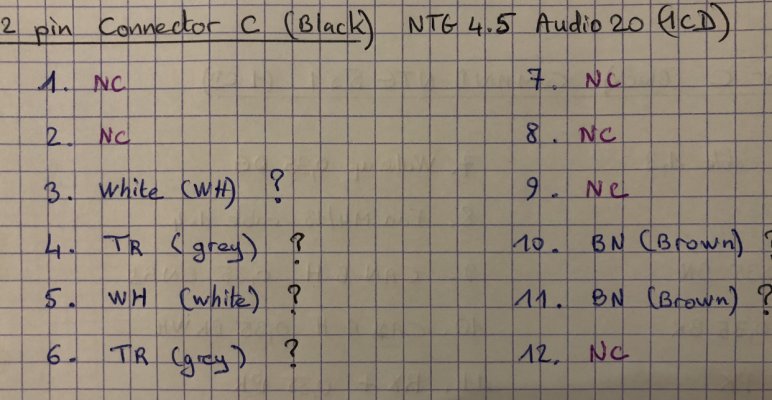 2 pin Connector C (Black) NTG 4.5 Audio 20 (1CD)
1. NC
2. NC
3. White (WH) ?
4. TR (grey) ?
5. WH (white) ?
6. TR (grey) ?
7. NC
8. NC
9. NC
10. BN (Brown) ?
11. BN (Brown) ?
12. NC